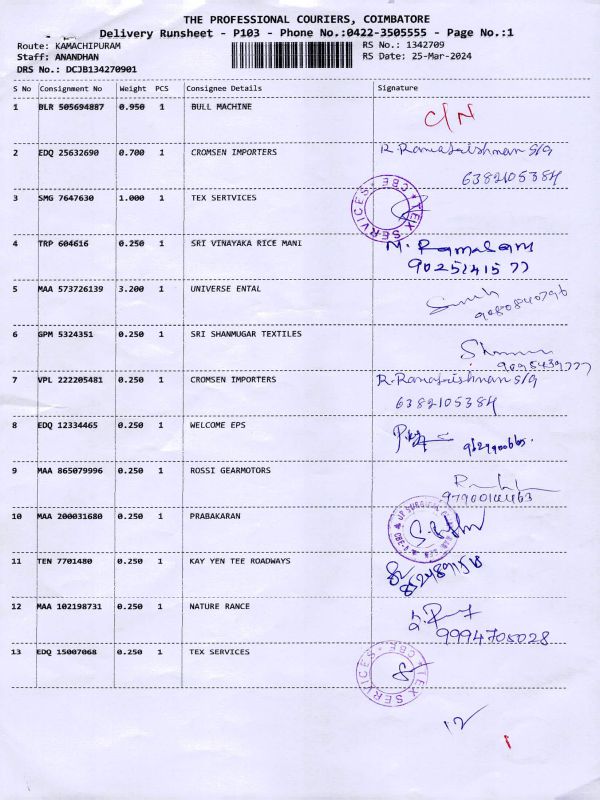 THE PROFESSIONAL COURIERS, COIMBATORE
Delivery Runsheet - P103 - Phone No.:0422-3505555 - Page No.:1
Route: KAMACHIPURAM
RS No.: 1342709
Staff: ANANDHAN
RS Date: 25-Mar-2024
DRS No.: DCJB134270901
S No Consignment No Weight PCS Consignee Details Signature
1 BLR 505694887 0.950 1 BULL MACHINE C/N
2 EDQ 25632690 0.700 1 CROMSEN IMPORTERS R. Ramakrishnan S/G
6382105384
3 SMG 7647630 1.000 1 TEX SERTVICES TEX SERVICES * CBE *
4 TRP 604616 0.250 1 SRI VINAYAKA RICE MANI M. Ramasam
9025141577
5 MAA 573726139 3.200 1 UNIVERSE ENTAL
9080840796
6 GPM 5324351 0.250 1 SRI SHANMUGAR TEXTILES
7 VPL 222205481 0.250 1 CROMSEN IMPORTERS R. Ramakrishnan S/G
6382105384
8 EDQ 12334465 0.250 1 WELCOME EPS
9 MAA 865079996 0.250 1 ROSSI GEARMOTORS
10 MAA 200031680 0.250 1 PRABAKARAN
11 TEN 7701480 0.250 1 KAY YEN TEE ROADWAYS
12 MAA 102198731 0.250 1 NATURE RANCE
9994705028
13 EDQ 15007068 0.250 1 TEX SERVICES TEX SERVICES * CBE *
12
1